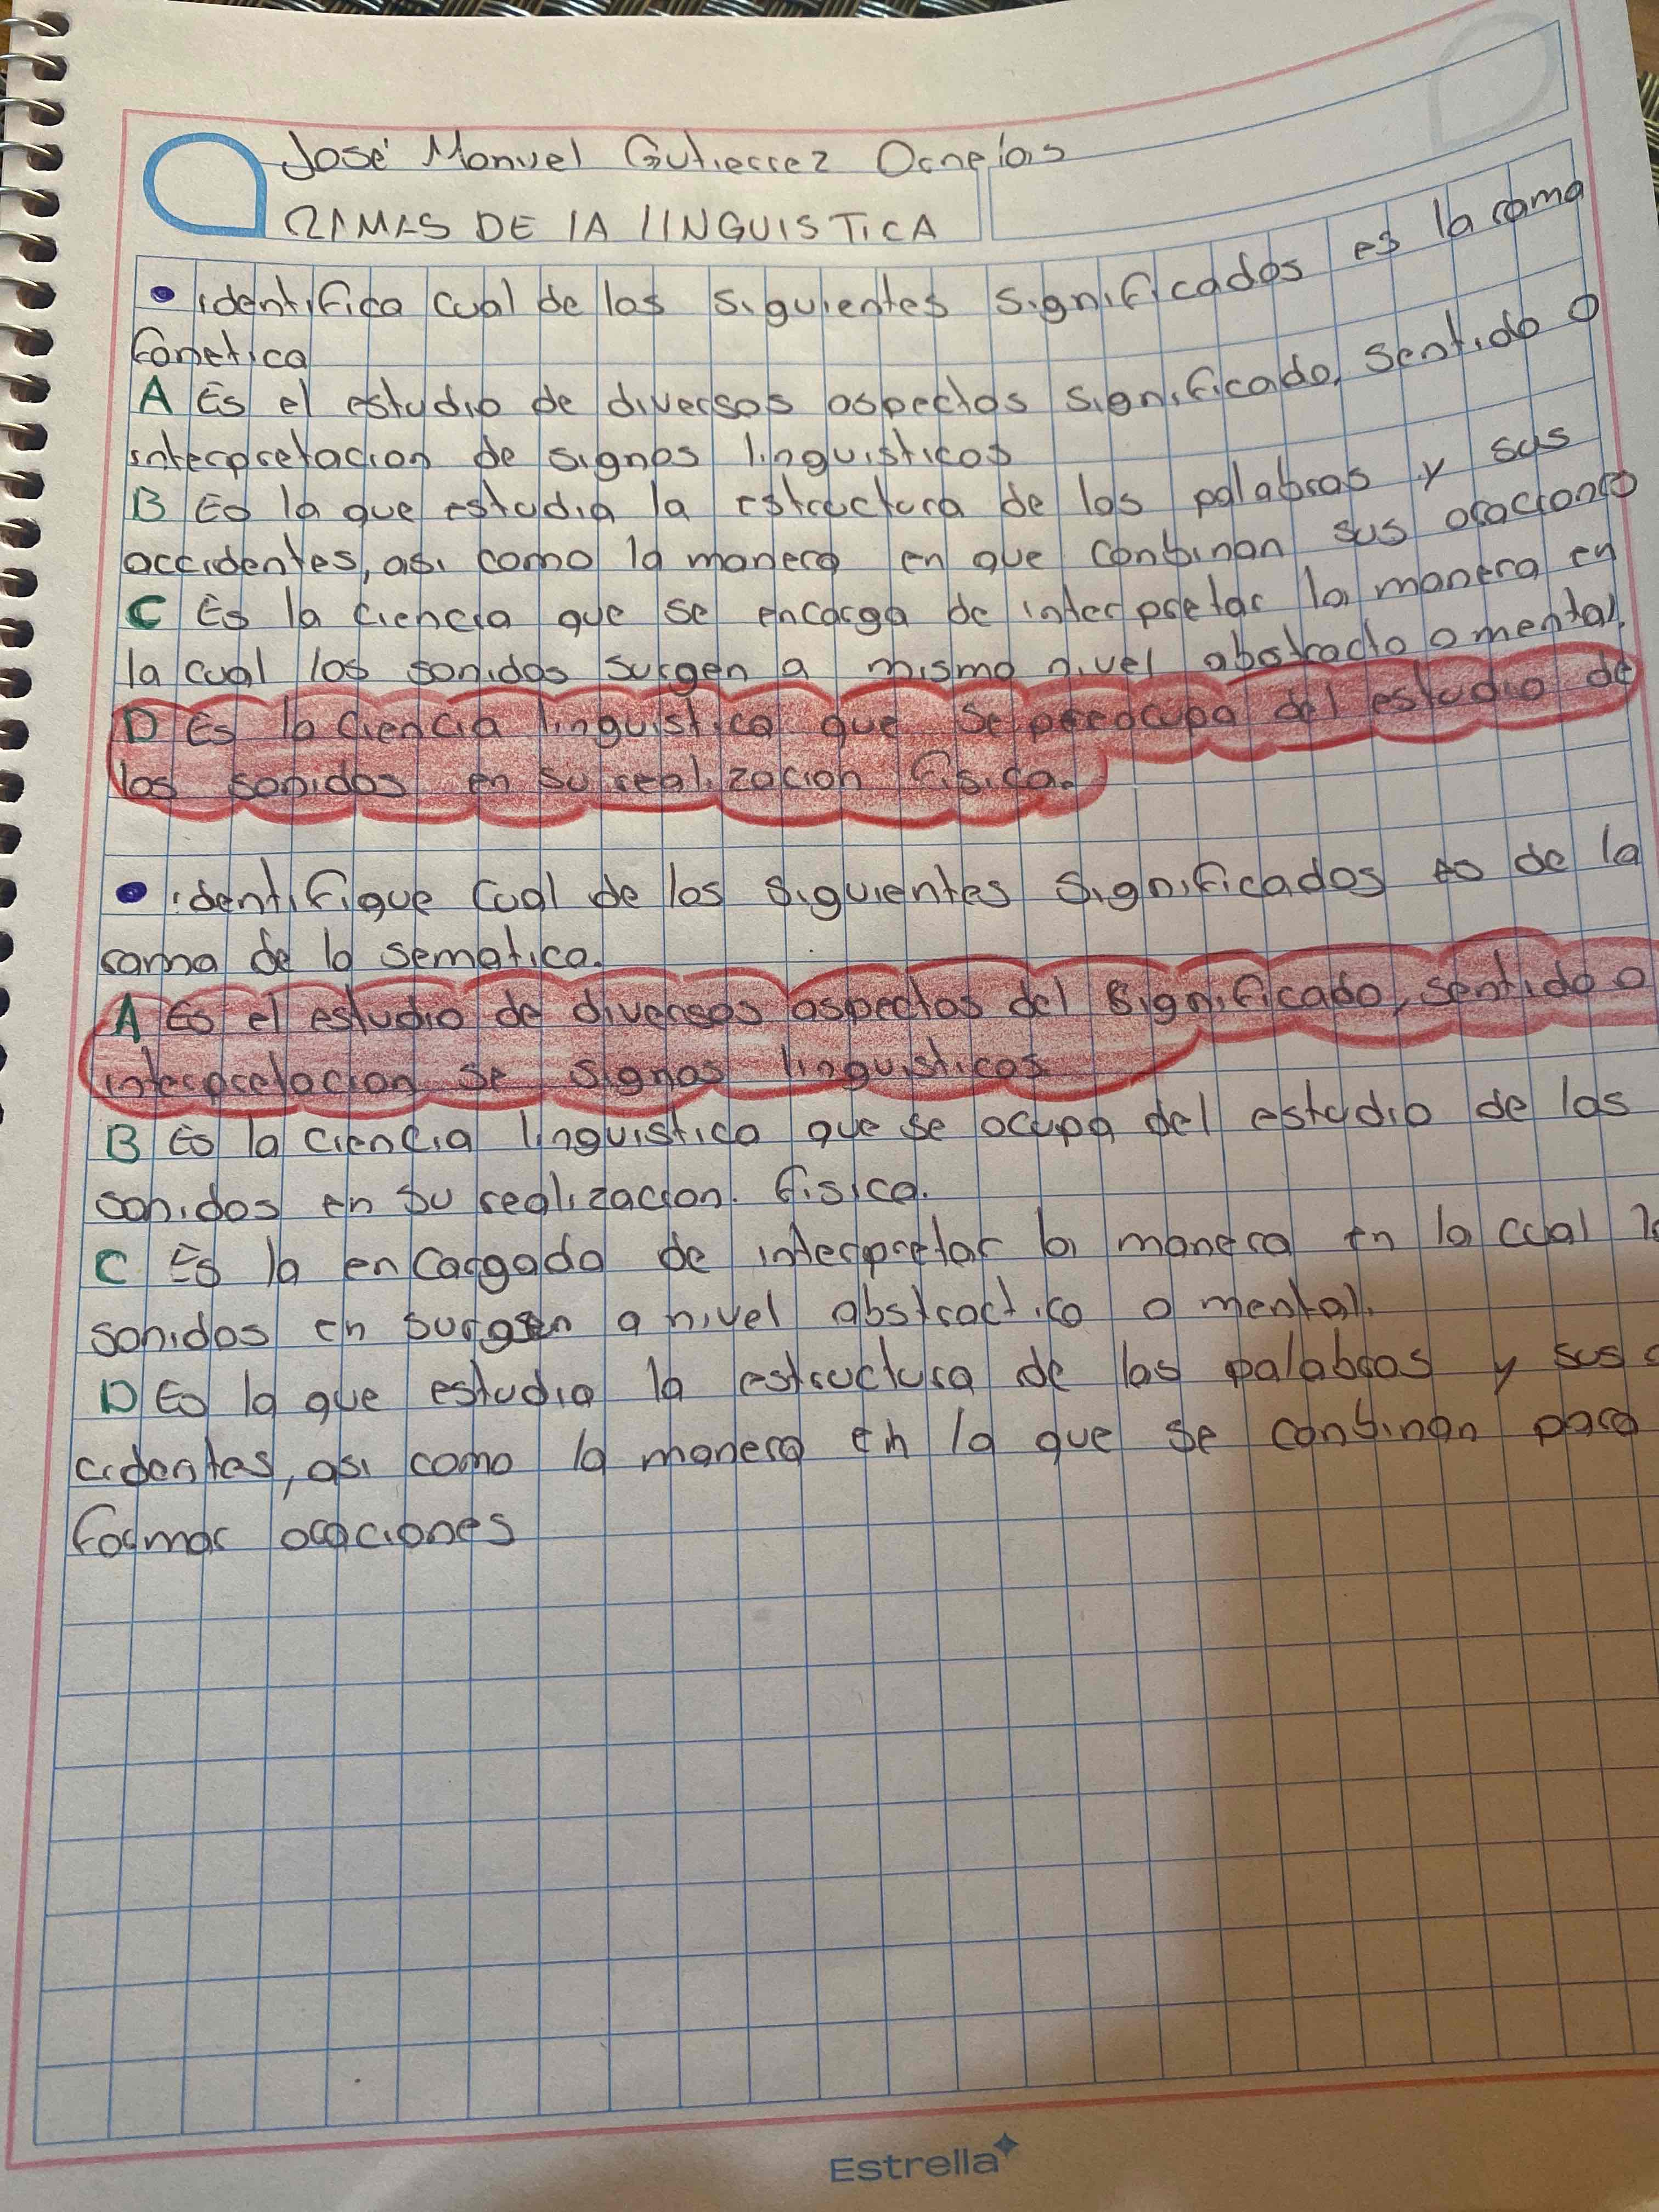 José Manuel Gutierrez Ornelas
RAMAS DE LA LINGUISTICA
• identifica cual de los siguientes significados es la rama
fonetica
A Es el estudio de diversos aspectos significado, sentido o
interpretacion de signos linguisticos
B Es la que estudia la estructura de las palabras y sus
accidentes, asi como la manera en que conbinan sus oraciones
C Es la ciencia que se encarga de interpretar la manera en
la cual los sonidos surgen a mismo nivel abstracto o mental.
D Es la ciencia linguistica que se preocupa del estudio de
los sonidos en su realizacion fisica.
• identifique cual de los siguientes significados es de la
rama de la sematica.
A Es el estudio de diversos aspectos del significado, sentido o
interpretacion se signos linguisticos
B Es la ciencia linguistica que se ocupa del estudio de los
sonidos en su realizacion. fisica.
C Es la encargada de interpretar la manera en la cual
sonidos en surgen a nivel abstractico o mental.
D Es la que estudia la estructura de las palabras y sus
cidentes, asi como la manera en la que se conbinan para
formar oraciones
Estrella